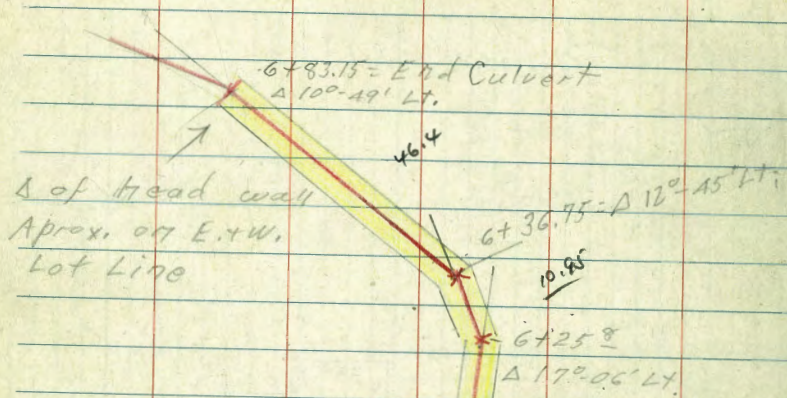 6+83.15= End Culvert
Δ 10°-49' Lt.
46.4
Δ of head wall
Aprox. on E.+W.
Lot Line
6+36.75= Δ 12°-45' Lt.
10.95
6+25 8
Δ 17°-06' Lt